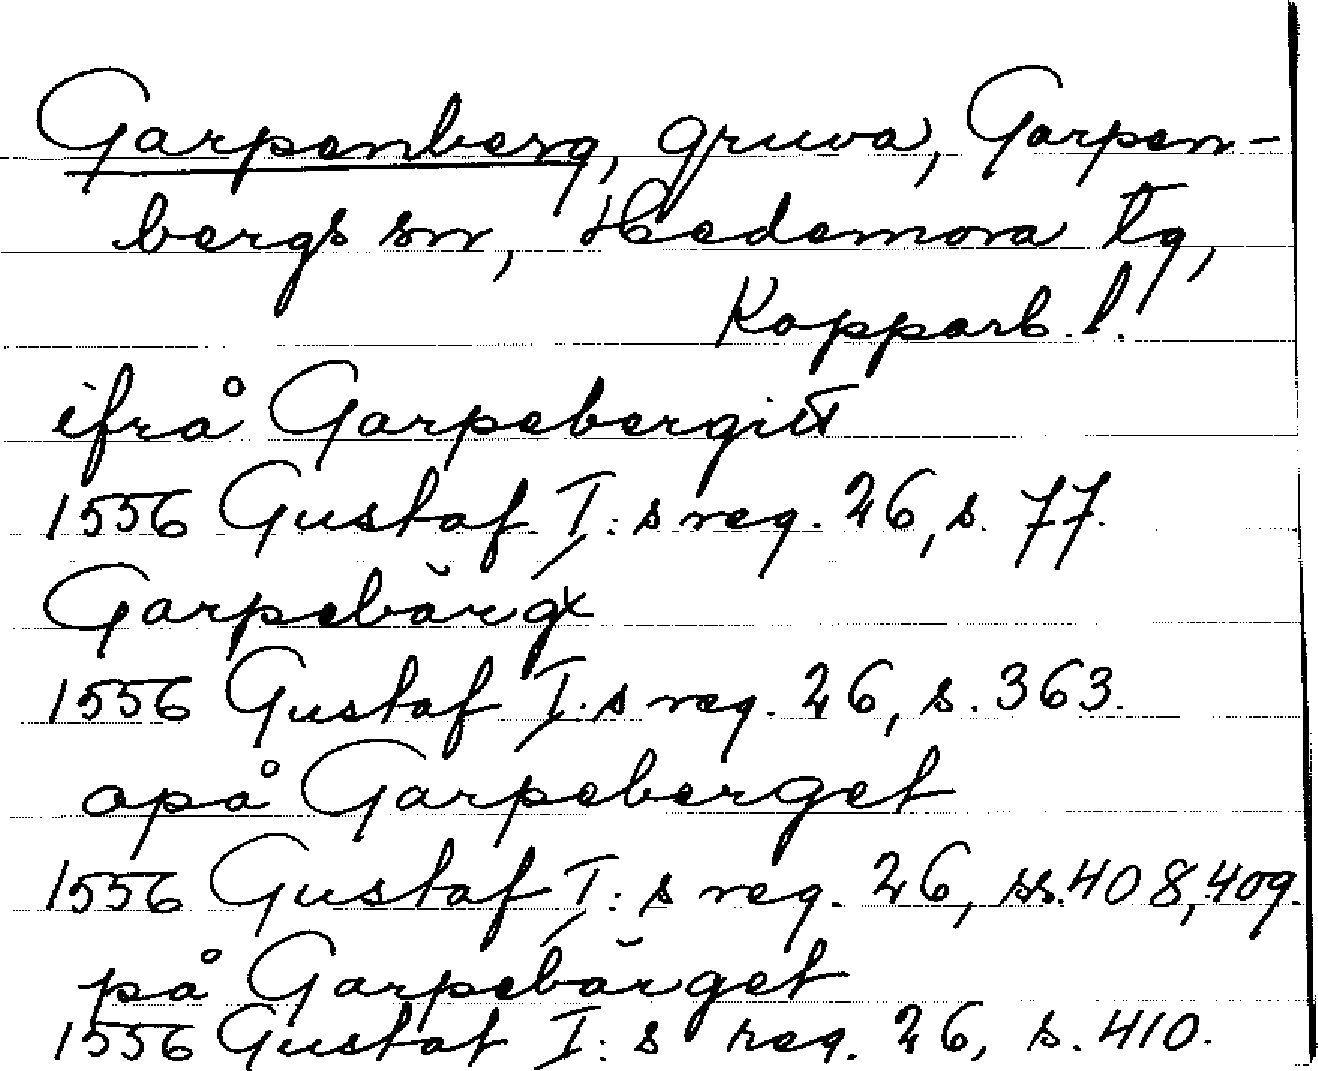 Garpenberg, gruva, Garpen-
bergs sn, Hedemora tg,
Kopparb. l.
ifrå Garpebergitt
1556 Gustaf I:s reg. 26, s. 77.
Garpebärgx
1556 Gustaf I:s reg. 26, s. 363.
opå Garpeberget
1556 Gustaf I:s reg. 26, ss. 408, 409.
på Garpebärget
1556 Gustaf I:s reg. 26, s. 410.